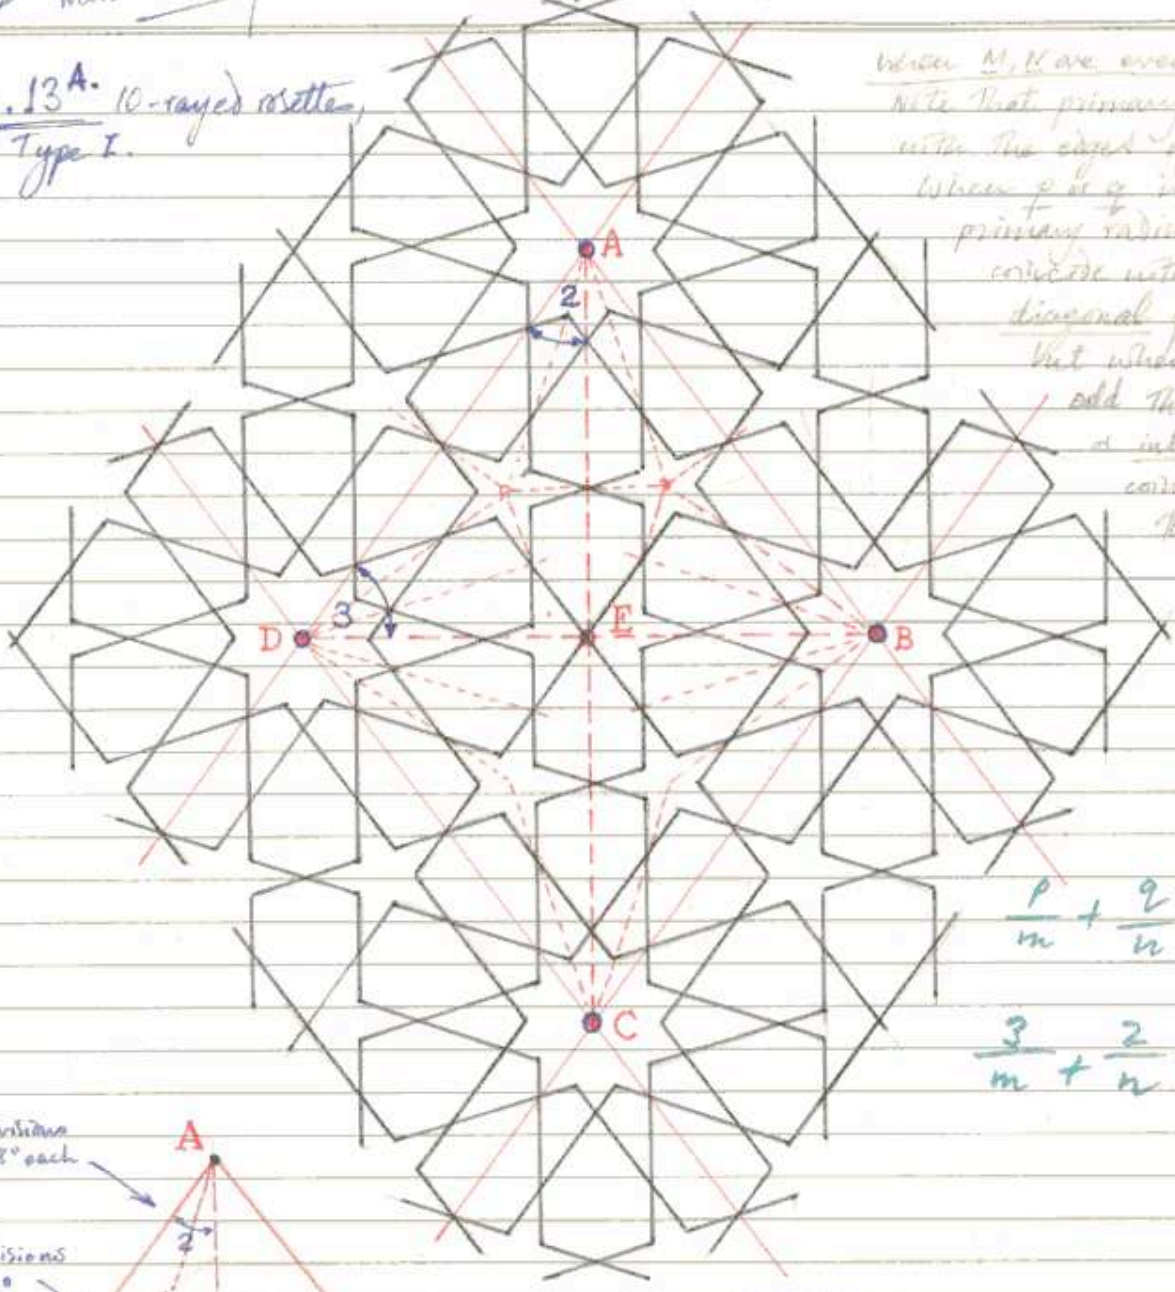 .13A. 10-rayed rosettes,
Type I.
when M, N are even
Note that primar
with the edges
when p or q i
primary radi
coincide with
diagonal
but when
odd
A
2
3
D
E
B
C
p/m + q/n
3/m + 2/n
visions
8° each
A
2
isions